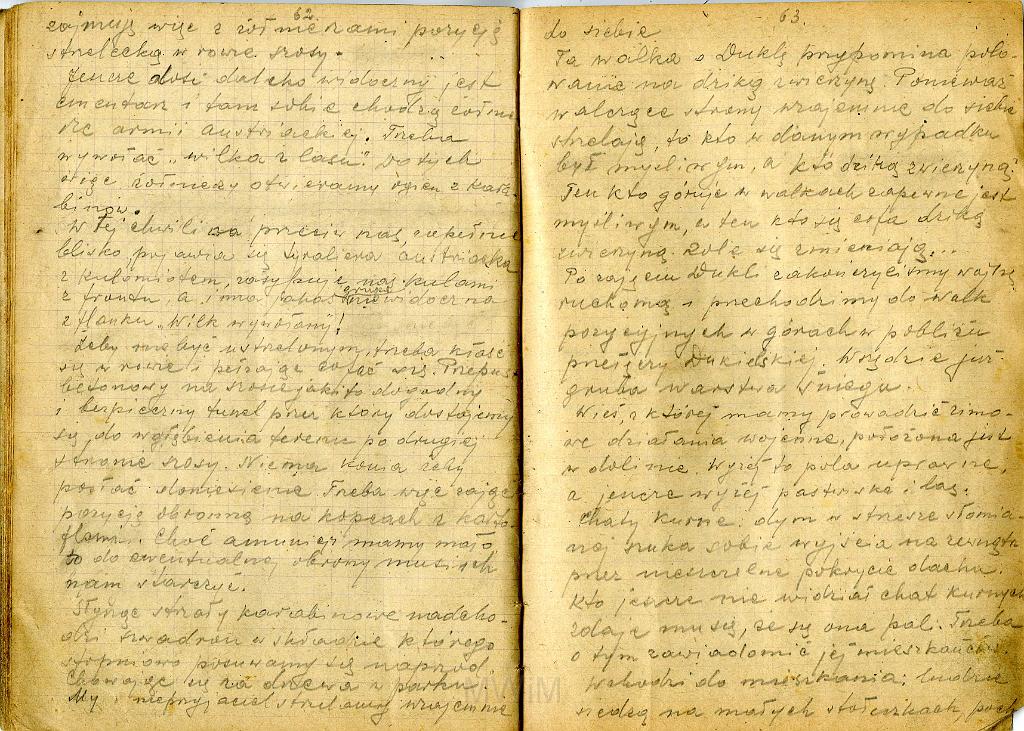 62
zajmują więc z żołnierzami pozycję
strzelecką w rowie szosy.
Jeszcze dość daleko widoczny jest
cmentarz i tam sobie chodzą żołnie
rze armii austriackiej. Trzeba
wywołać "wilka z lasu". Do tych
więc żołnierzy otwieramy ogień z kara
binów.
W tej chwili na przeciw nas, zupełnie
blisko, pojawia się tyraliera austriacka
z kulomiotem, zasypuje nas kulami
z frontu, a inna jakaś grupa niewidoczna
z flanku. "Wilk wywołany!
Żeby nie być ustrzelonym, trzeba kłaść
się w rowie i pełzając cofać się. Przepust
betonowy na szosie jak to dogodny
i bezpieczny tunel przez który dostajemy
się do wgłębienia terenu po drugiej
stronie szosy. Niema konia żeby
posłać doniesienie. Trzeba więc zająć
pozycję obronną na kopcach z karto-
flami. Choć amunicji mamy mało
to do ewentualnej obrony musi ich
nam starczyć.
Słysząc strzały karabinowe nadcho-
dzi szwadron w składzie którego
stopniowo posuwamy się naprzód
chowając się za drzewa z parku.
My i nieprzyjaciel strzelamy wzajemnie
63.
do siebie
Ta walka o Duklę przypomina polo-
wanie na dziką zwierzynę. Ponieważ
walczące strony wzajemnie do siebie
strzelają, to kto w danym wypadku
był myśliwym, a kto dziką zwierzyną?
Ten kto góruje w walkach zapewne jest
myśliwym, a ten kto się cofa dziką
zwierzyną. Role się zmieniają...
Po zajęciu Dukli zakończyliśmy wojnę
ruchomą i przechodzimy do walk
pozycyjnych w górach w pobliżu
przełęczy Dukielskiej. Wszędzie już
gruba warstwa śniegu.
Wieś, z której mamy prowadzić zimo-
we działania wojenne, położona jest
w dolinie. Wyżej to pola uprawne,
a jeszcze wyżej pastwiska i las.
Chaty kurne: dym w strzesze słomia-
nej szuka sobie wyjścia na zewnątrz
przez nieszczelne pokrycie dachu.
Kto jeszcze nie widział chat kurnych
zdaje mu się, że się ona pali. Trzeba
o tym zawiadomić jej mieszkańców.
Wchodzi do mieszkania: ludzie
siedzą na małych stołeczkach, poch
MWTM